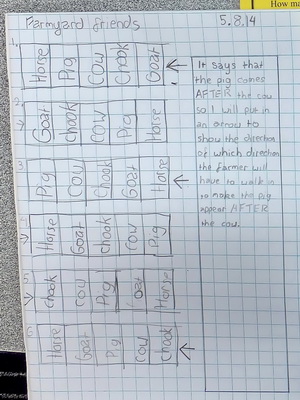 How ma
Farmyard friends 5.8.14
1.
Horse Pig Cow Chook Goat
2.
Goat Chook Cow Pig Horse
3.
Pig Cow Chook Goat Horse
Horse Goat Chook Cow Pig
5
Chook Cow Pig Goat Horse
6
Horse Goat Pig Cow Chook
It says that
the pig comes
AFTER the cow
so I will put in
an arrow to
show the direction
of which direction
the farmer will
have to walk in
to make the pig
appear AFTER
the cow.